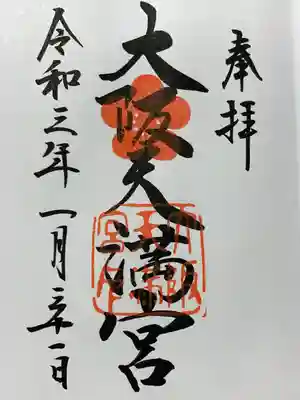 奉拝
大阪天満宮
令和三年一月二十一日